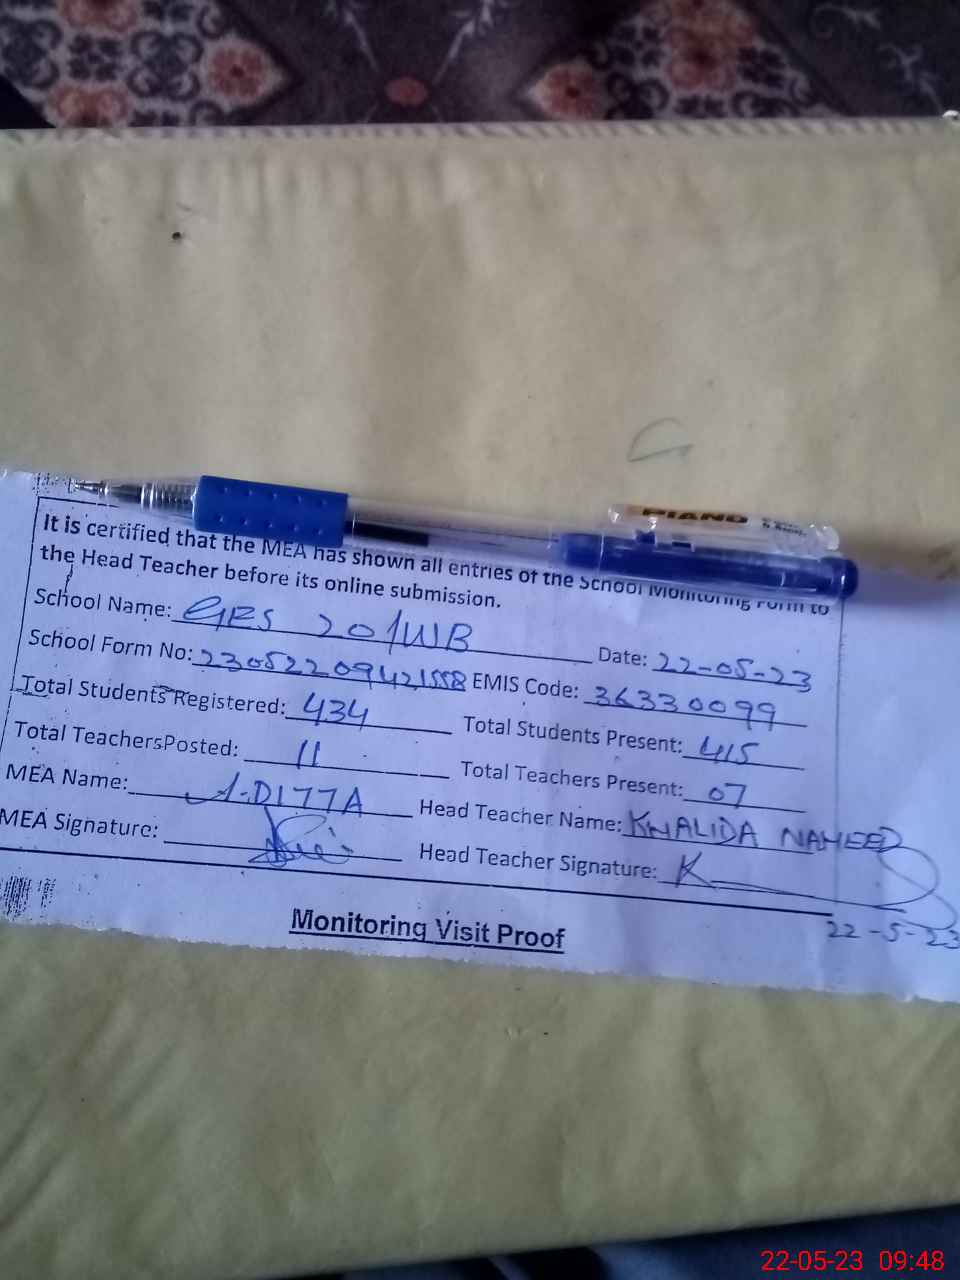 PIANO
It is certified that the MEA has shown all entries of the School Monitoring Form to
the Head Teacher before its online submission.
School Name: GES 201WB Date: 22-05-23
School Form No: 23052209421558 EMIS Code: 36330099
Total Students Registered: 434 Total Students Present: 415
Total TeachersPosted: 11 Total Teachers Present: 07
MEA Name: A.DITTA Head Teacher Name: KHALIDA NAHEED
MEA Signature: Head Teacher Signature: K
22-5-23
Monitoring Visit Proof
22-05-23 09:48